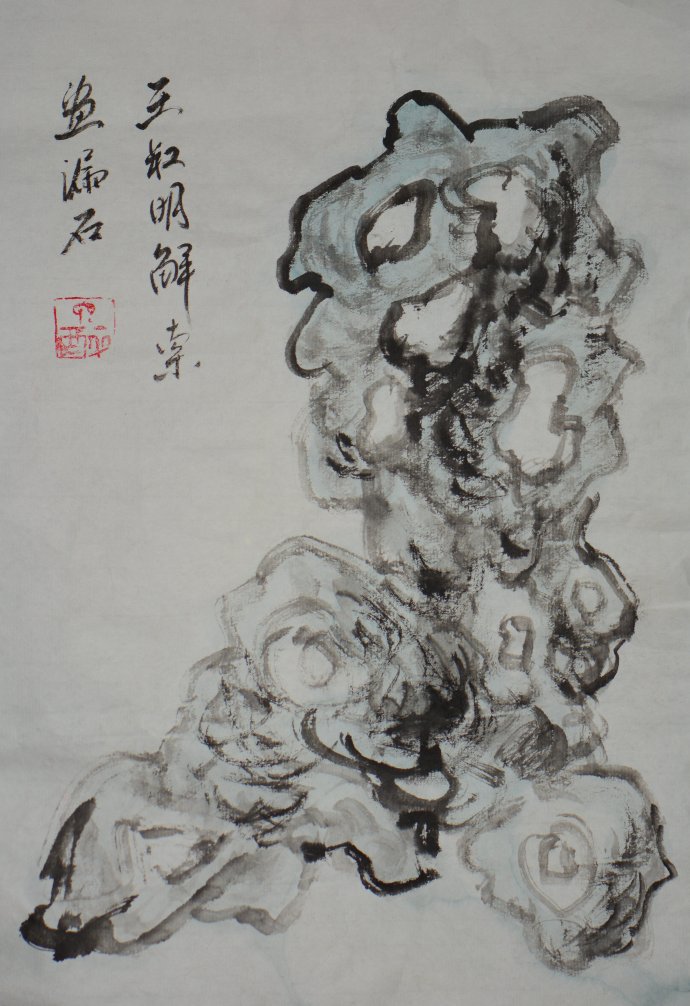 王虹明解索
画漏石